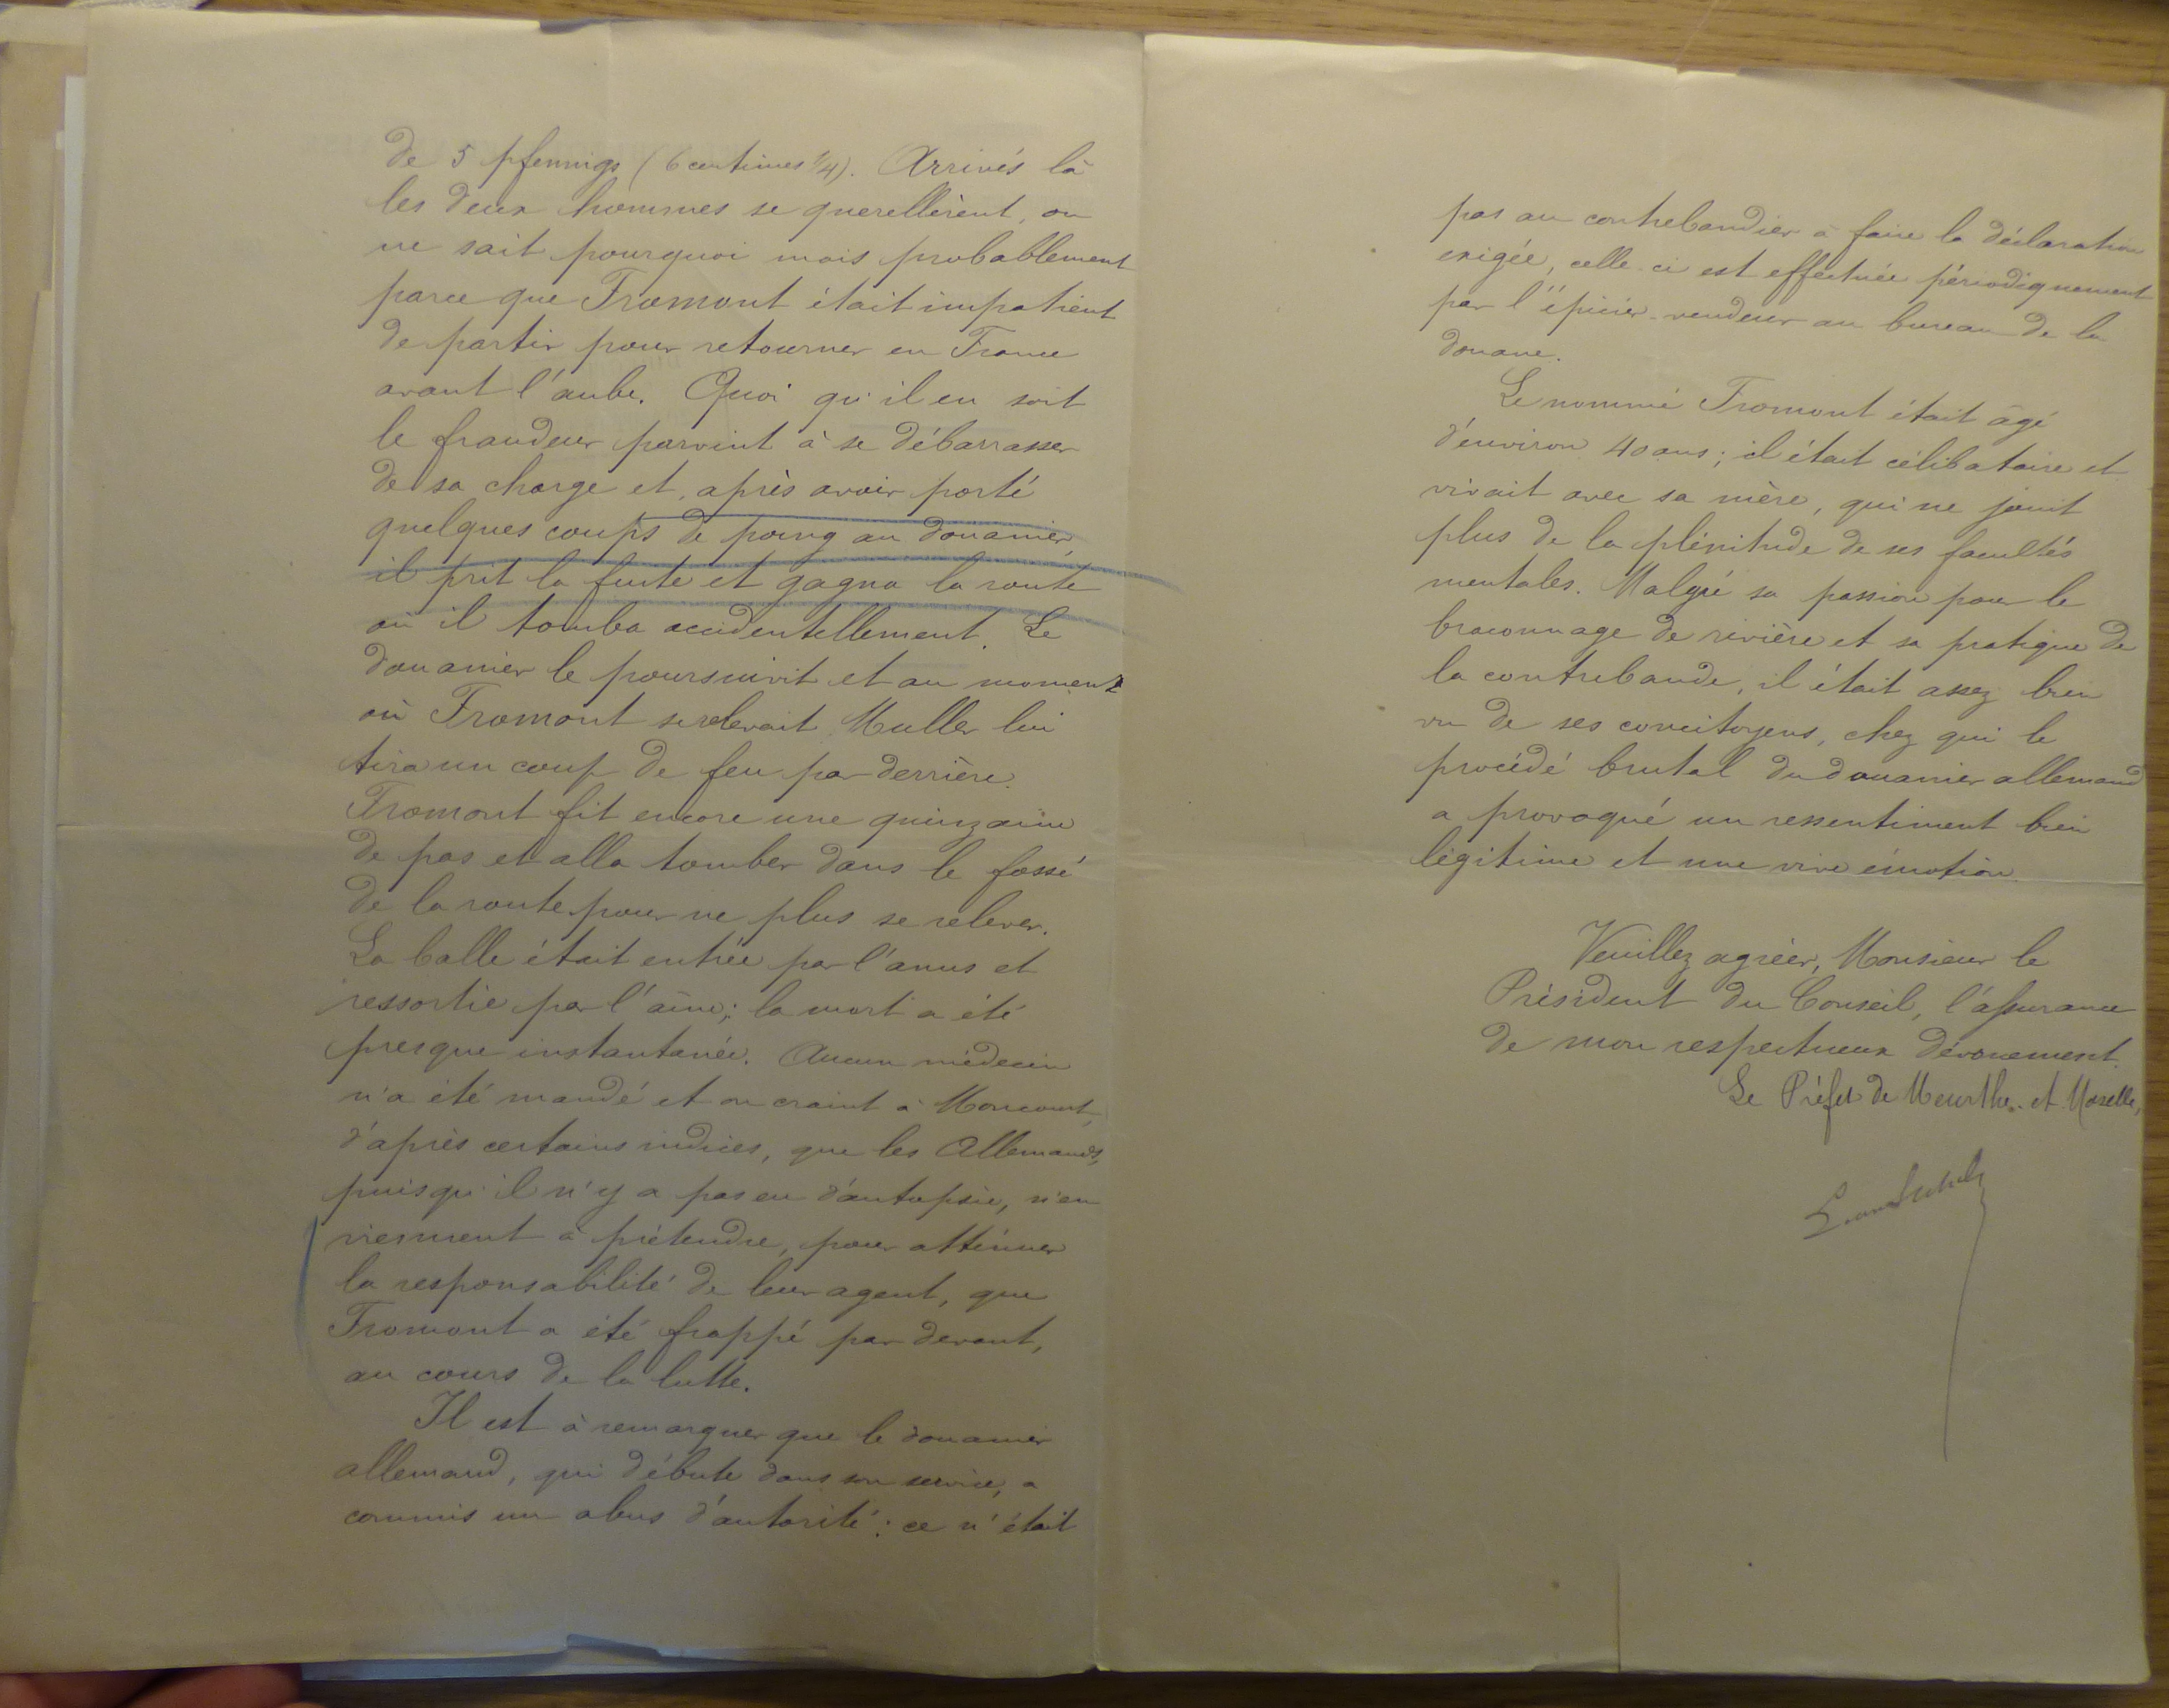 de 5 pfennigs (6 centimes 1/4). Arrivés là
les deux hommes se querellèrent, on
ne sait pourquoi mais probablement
parce que Fromont était impatient
de partir pour retourner en France
avant l'aube. Quoi qu'il en soit
le fraudeur parvint à se débarrasser
de sa charge et, après avoir porté
quelques coups de poing au douanier,
il prit la fuite et gagna la route
où il tomba accidentellement. Le
douanier le poursuivit et au moment
où Fromont se relevait Muller lui
tira un coup de feu par derrière.
Fromont fit encore une quinzaine
de pas et alla tomber dans le fossé
de la route pour ne plus se relever.
La balle était entrée par l'anus et
ressortie par l'aine; la mort a été
presque instantanée. Aucun médecin
n'a été mandé et on craint à Moncourt,
d'après certains indices, que les Allemands,
puisqu'il n'y a pas eu d'autopsie, n'en
viennent à prétendre, pour atténuer
la responsabilité de leur agent, que
Fromont a été frappé par devant,
au cours de la lutte.
Il est à remarquer que le douanier
allemand, qui débute dans son service, a
commis un abus d'autorité: ce n'était
pas au contrebandier à faire la déclaration
exigée, celle-ci est effectuée périodiquement
par l'épicier-vendeur au bureau de la
douane.
Le nommé Fromont était âgé
d'environ 40 ans; il était célibataire et
vivait avec sa mère, qui ne jouit
plus de la plénitude de ses facultés
mentales. Malgré sa passion pour le
braconnage de rivière et sa pratique de
la contrebande, il était assez bien
vu de ses concitoyens, chez qui le
procédé brutal du douanier allemand
a provoqué un ressentiment bien
légitime et une vive émotion.
Veuillez agréer, Monsieur le
Président du Conseil, l'assurance
de mon respectueux dévouement.
Le Préfet de Meurthe-et-Moselle,